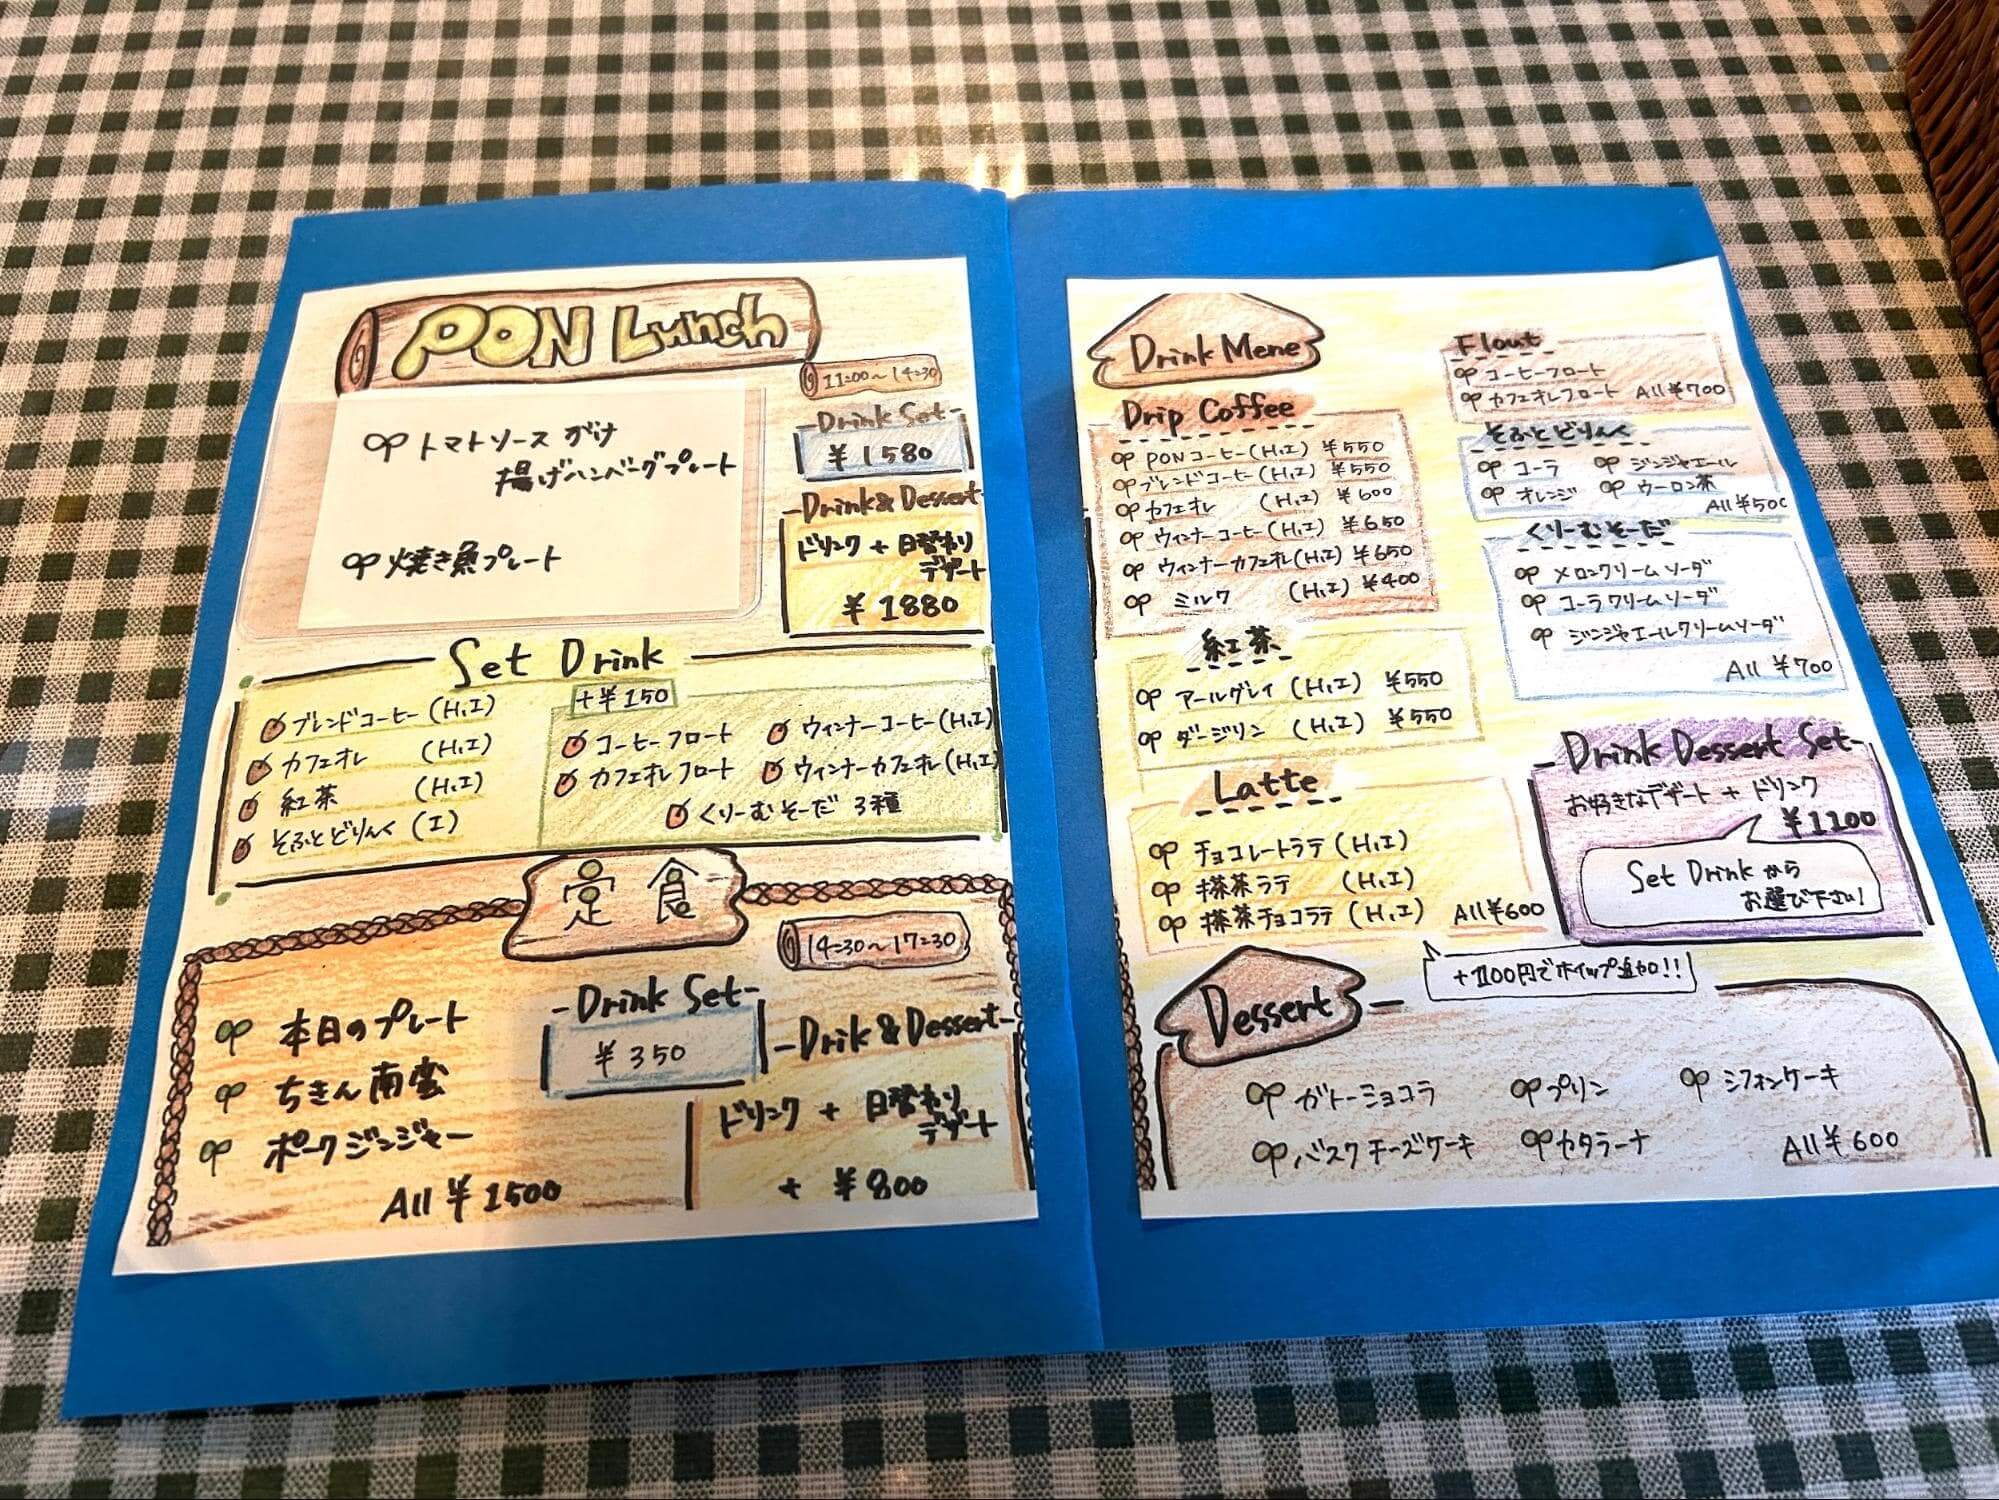 PON Lunch
11:00～14:30
トマトソースがけ
揚げハンバーグプレート
焼き魚プレート
-Drink Set-
¥1580
-Drink&Dessert-
ドリンク + 日替わり
デザート
¥1880
Set Drink
ブレンドコーヒー (H,I)
カフェオレ (H,I)
紅茶 (H,I)
そふとどりんく (I)
+¥150
コーヒーフロート ウィンナーコーヒー(H,I)
カフェオレフロート ウィンナーカフェオレ(H,I)
くりーむそーだ 3種
定食
14:30～17:30
本日のプレート
ちきん南蛮
ポークジンジャー
All ¥1500
-Drink Set-
¥350
-Drik & Dessert-
ドリンク + 日替わり
デザート
+ ¥800
Drink Mene
Drip Coffee
PONコーヒー(H,I) ¥550
ブレンドコーヒー(H,I) ¥550
カフェオレ (H,I) ¥600
ウィンナーコーヒー(H,I) ¥650
ウィンナーカフェオレ(H,I) ¥650
ミルク (H,I) ¥400
紅茶
アールグレイ (H,I) ¥550
ダージリン (H,I) ¥550
Latte
チョコレートラテ (H,I)
抹茶ラテ (H,I)
抹茶チョコラテ (H,I) All¥600
+100円でホイップ追加!!
Flout
コーヒーフロート
カフェオレフロート All¥700
そふとどりんく
コーラ ジンジャエール
オレンジ ウーロン茶
All¥500
くりーむそーだ
メロンクリームソーダ
コーラクリームソーダ
ジンジャエールクリームソーダ
All ¥700
-Drink Dessert Set-
お好きなデザート + ドリンク
¥1100
Set Drinkから
お選び下さい!
Dessert
ガトーショコラ プリン シフォンケーキ
バスクチーズケーキ カタラーナ All¥600